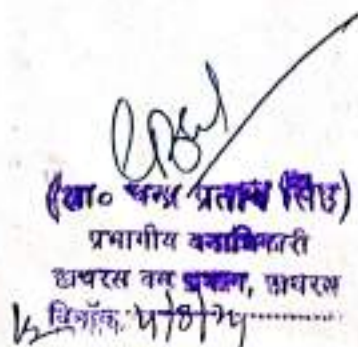 (डा० चन्द्र प्रताप सिंह)
प्रभागीय वनाधिकारी
हाथरस वन प्रभाग, हाथरस
दिनाँक: